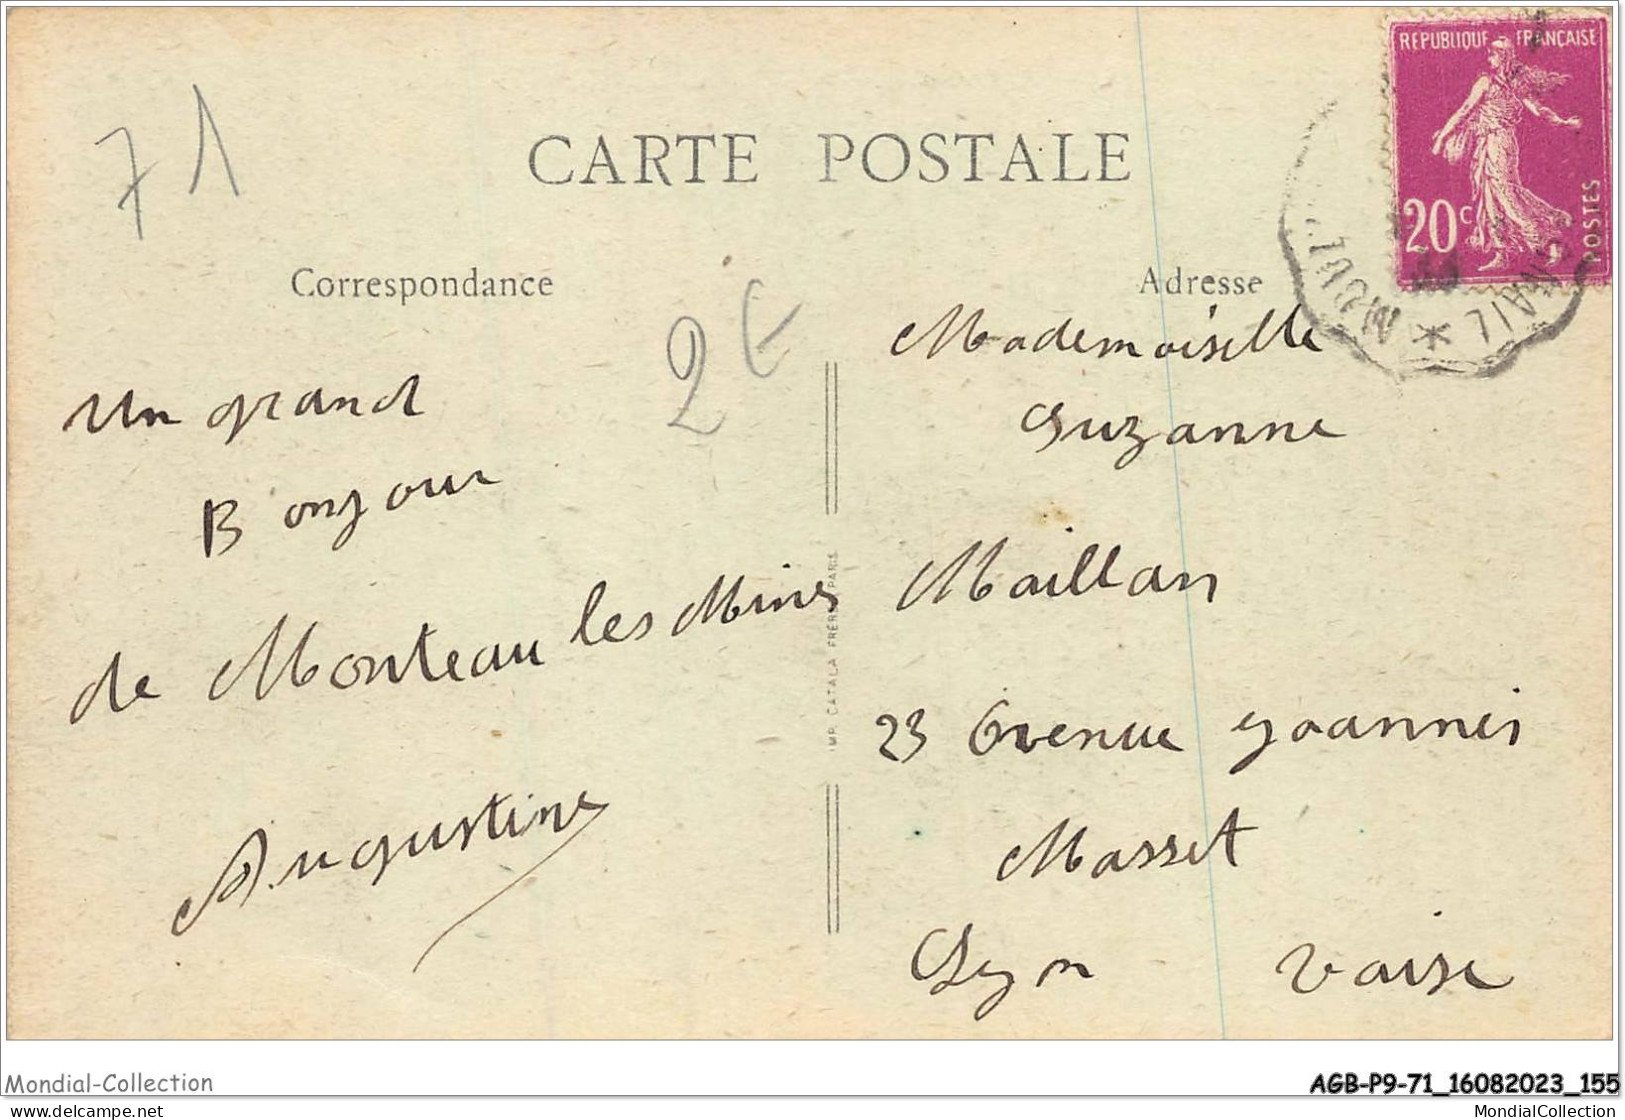 71
CARTE POSTALE
REPUBLIQUE FRANÇAISE
20c
POSTES
Correspondance
Adresse
2 €
un grand
Bonjour
de Monteau les Mines
Augustine
IMP. CATALA FRÈRES PARIS
Mademoiselle
Suzanne
Maillan
23 Avenue Yoannes
Masset
Lyon Vaise
Mondial-Collection
AGB-P9-71_16082023_155
www.delcampe.net
MondialCollection